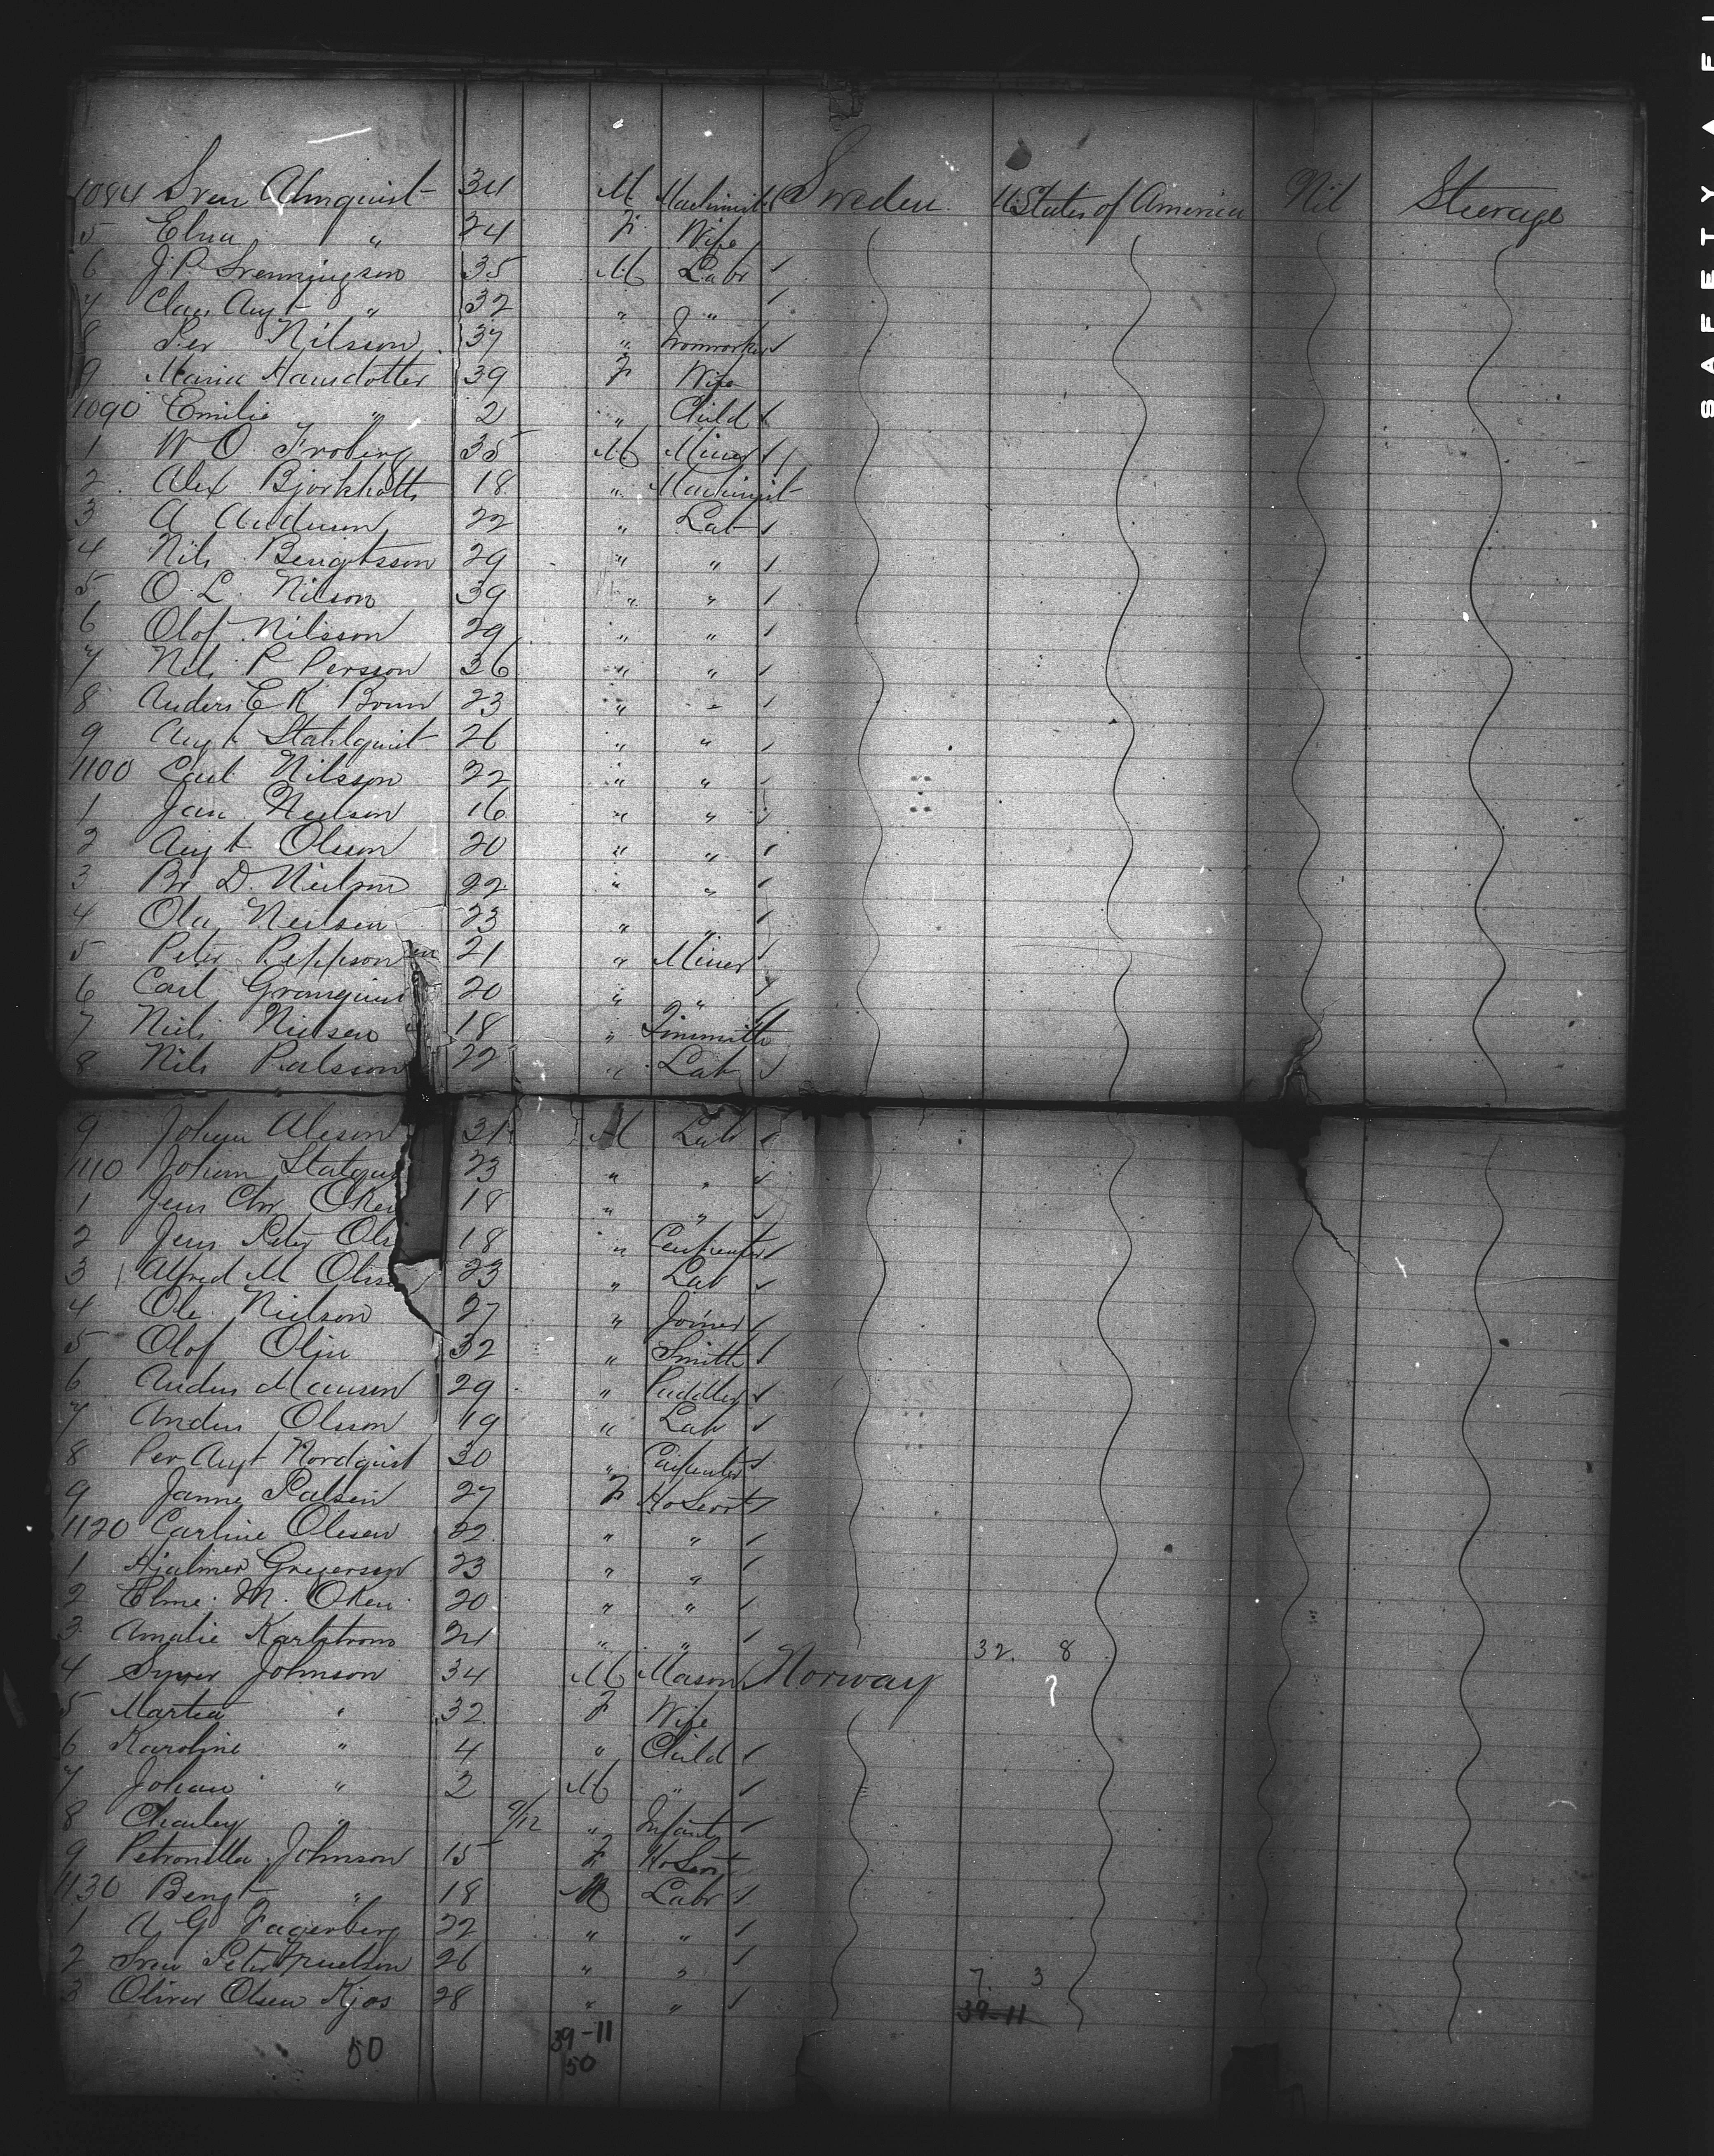 1084 Sven Almquist 34 M Machinist Sweden U States of America Nil Steerage
5 Elna " 24 F Wife
6 J. P. Svenningson 35 M Labr
7 Clau Augt " 32 " "
8 Per Nilsson 37 " Ironworker
9 Maria Hansdotter 39 F Wife
1090 Emilie " 2 " Child
1 W O. Froberg 35 M Miner
2 Alex Bjorkholtt 18 " Machinist
3 A Anderson 22 " Lab
4 Nils Bengtsson 29 " "
5 O. L. Nilson 39 " "
6 Olof Nilsson 29 " "
7 Nils P Persson 36 " "
8 Anders E K 23 " "
9 Augt Stahlquist 26 " "
1100 Carl Nilsson 22 " "
1 Jan Neilson 16 " "
2 Augt Olsson 20 " "
3 Br D. Neilson 22 " "
4 Ola Neilsen 23 " "
5 Peter 21 " Miner
6 Carl Granquist 20 " "
7 Niels Nielsen 18 " Tinsmith
8 Nils Palsson 22 " Lab
9 Johan Aleson 31 M Lab
1110 Johan 23 " "
1 Jens Chr 18 " "
2 Jens Peter Ols 18 " Carpenter
3 Alfred M Olse 23 " Lab
4 Ole Nielson 27 " Joiner
5 Olof Olin 32 " Smith
6 Anders Mansen 29 " Puddler
7 Anders Olsson 19 " Lab
8 Per Augt Nordquist 30 " Carpenter
9 Janne Palsen 27 F Ho Servt
1120 Carline Olesen 22 " "
1 Hjalmer Gregersson 23 " "
2 Elme M. Oken 20 " "
3 Amalie Karlstrom 21 " "
32. 8
4 Johnson 34 M Mason Norway
5 Martea " 32 F Wife
6 Karoline " 4 " Child
7 Johan " 2 M "
8 Charley " 9/12 " Infant
9 Petronella Johnson 15 F Ho Servt
1130 Bengt " 18 M Labr
1 A G Fagerberg 22 " "
2 Sven Peter 26 " "
7. 3
3 Oliver Olsen Kjos 28 " "
39-11
50 39-11
50
SAFETY